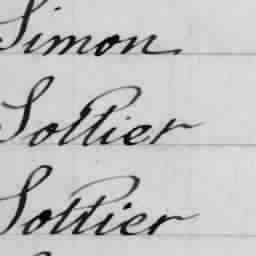 Simon
Sottier
Sottier